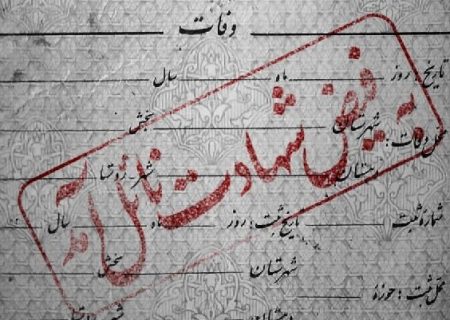 وفات
تاریخ: روز ماه سال
محل وفات: شهرستان بخش
دهستان شهر ـ روستا
شماره ثبت تاریخ ثبت: روز ماه سال
محل ثبت: حوزه شهرستان بخش
شهر روستا
به فیض شهادت نائل آمد